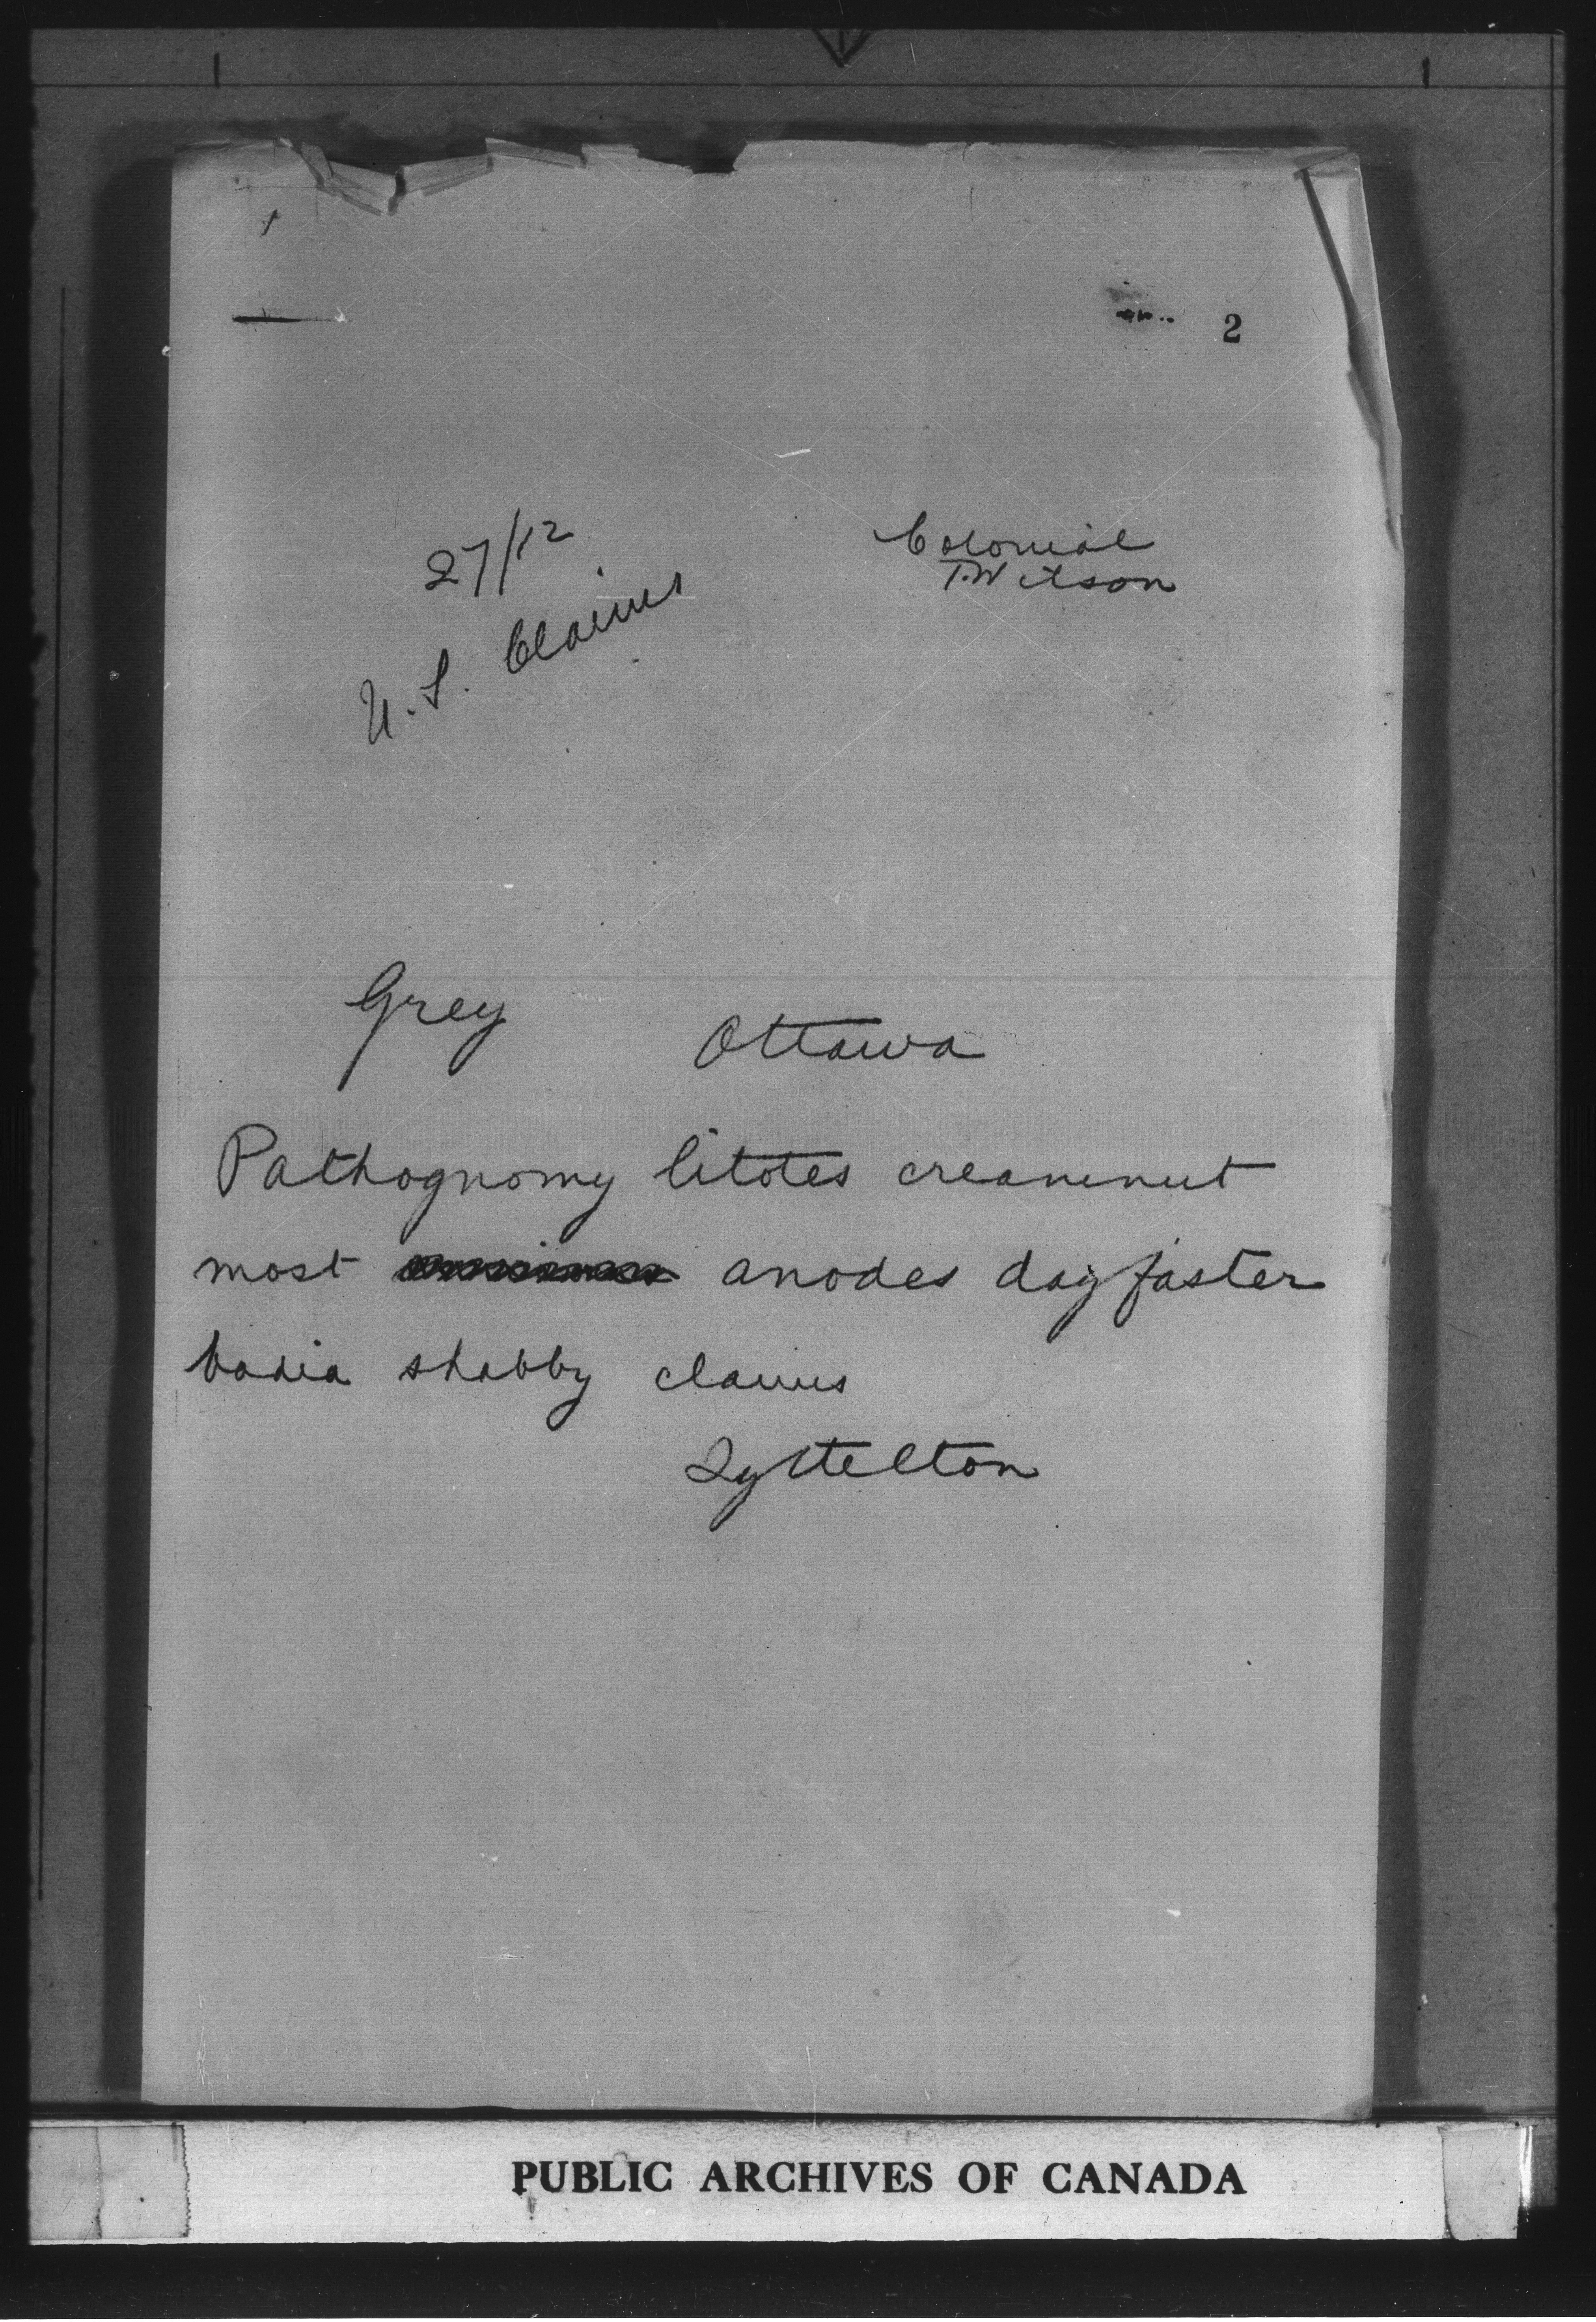 2
27/12
Colonial
T. Wilson
U.S. Claims
Grey
Ottawa
Pathognomy litotes creamnut
most anodes dayfaster
badia shabby claims
Lyttelton
PUBLIC ARCHIVES OF CANADA